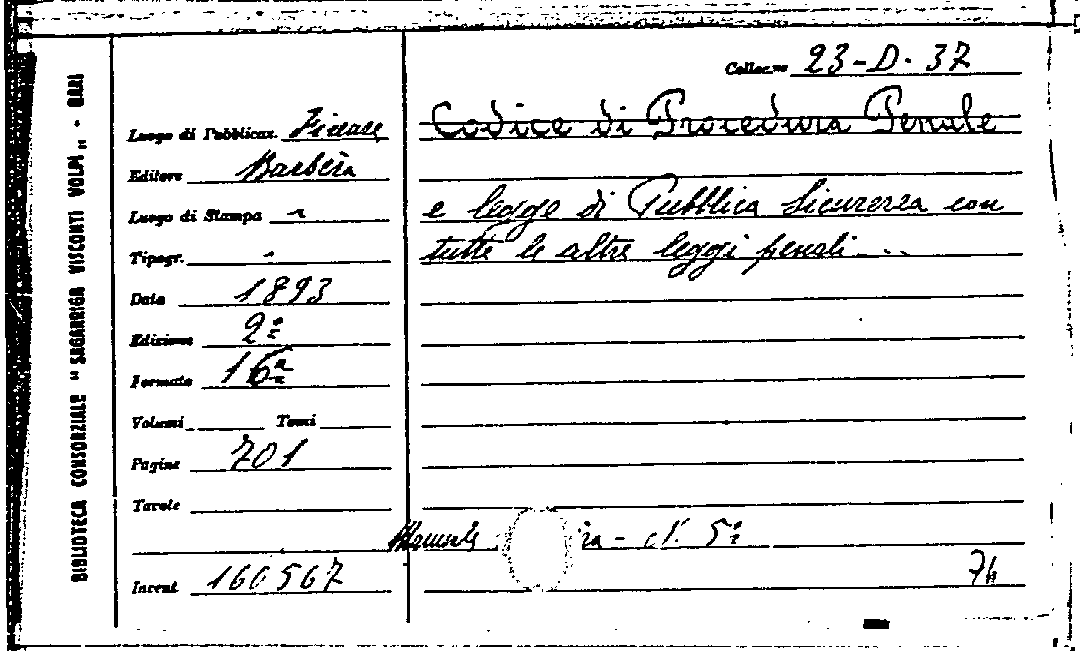 BIBLIOTECA CONSORZIALE "SAGARRIGA VISCONTI VOLPI" - BARI
Colloc.ne 23-D-37
Luogo di Pubblicaz. Firenze
Codice di Procedura Penale
Editore Barbèra
Luogo di Stampa -
e legge di Pubblica Sicurezza con
Tipogr. -
tutte le altre leggi penali ...
Data 1893
Edizione 2ª
Formato 16º
Volumi Tomi
Pagine 701
Tavole
N. 5º
Invent 160567